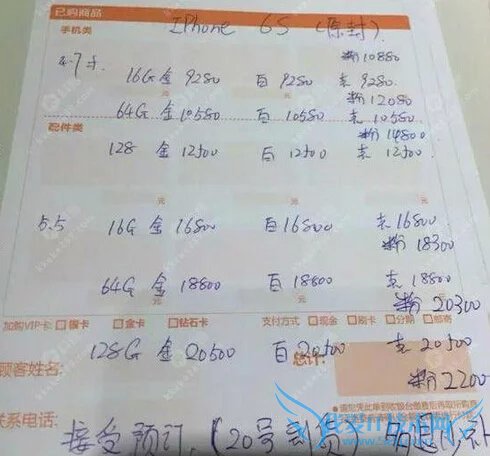 已购商品
手机类 IPhone 6S (原封)
粉10880
4.7寸 16G 金 9280 白 9280 灰 9280
粉12080
64G 金 10580 白 10580 灰 10580
粉14800
配件类
128 金 12500 白 12500 灰 12500
元 元 元
5.5 16G 金 16800 白 16800 灰 16800
粉 18300
64G 金 18800 白 18800 灰 18800
元 元
粉 20300
加购VIP卡: 银卡 金卡 钻石卡 支付方式 现金 刷卡 分期 邮寄
128G 金 20500 白 20500 灰 20500
顾客姓名: 总计:
粉 2200
联系电话:
接受预订,(20号到货)